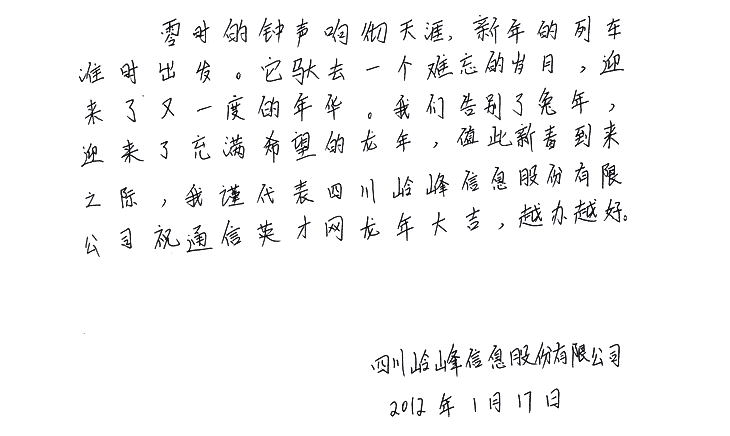 零时的钟声响彻天涯,新年的列车
准时出发。它驮去一个难忘的岁月,迎
来了又一度的年华。我们告别了兔年,
迎来了充满希望的龙年,值此新春到来
之际,我谨代表四川岭峰信息股份有限
公司祝通信英才网龙年大吉,越办越好。
四川岭峰信息股份有限公司
2012年1月17日